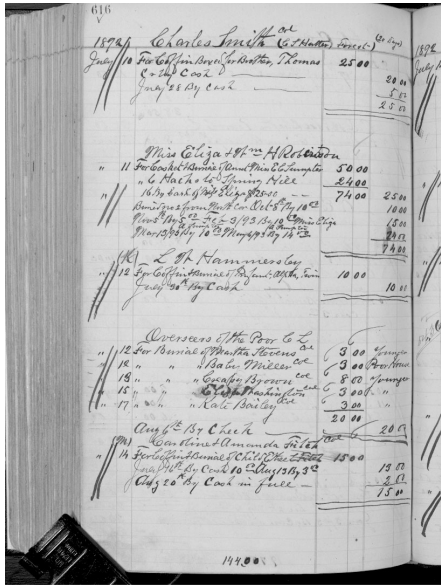 616
V
1892 Charles Smith col (C S Hutter) Forest)
July 10 For Coffin Box for Brother, Thomas 25 00
Cr By Cash 20 00
July 28 By Cash 5 00
25 00
Miss Eliza & Wm H Robinson
" 11 For Casket & Burial of Aunt Miss E 50 00
" 6 Hacks to Spring Hill 24 00
16 By Cash of Miss Eliza $25 00 74 00 25 00
from Oct 8th By 10 00 10 00
Nov 5th By 5 00 Feb 3/93 By 10 00 Miss Eliza 15 00
Mar 13/93 By 10 00 May 6/93 By 14 00 24 00
74 00
L W Hammersley
" 12 For Coffin & Burial of Infant, Twin 10 00
July 30th By Cash 10 00
Overseers of the Poor C L
" 12 For Burial of Martha Stevens Col 3 00 Younger
" 12 " " " Baby Miller Col 3 00 Poor House
" 13 " " " Brown col 8 00 Younger
" 15 " " " Washington col 3 00 " "
" 17 " " " Kate Bailey Col 3 00 "
20 00
Aug 6th By Check 20 00
Caroline & Amanda Col
" 14 For Coffin & Burial of Child 15 00
July By Cash 10 00 Aug 13 By 3 00 13 00
Aug 20th By Cash in full 2 00
15 00
144.00
1892
July